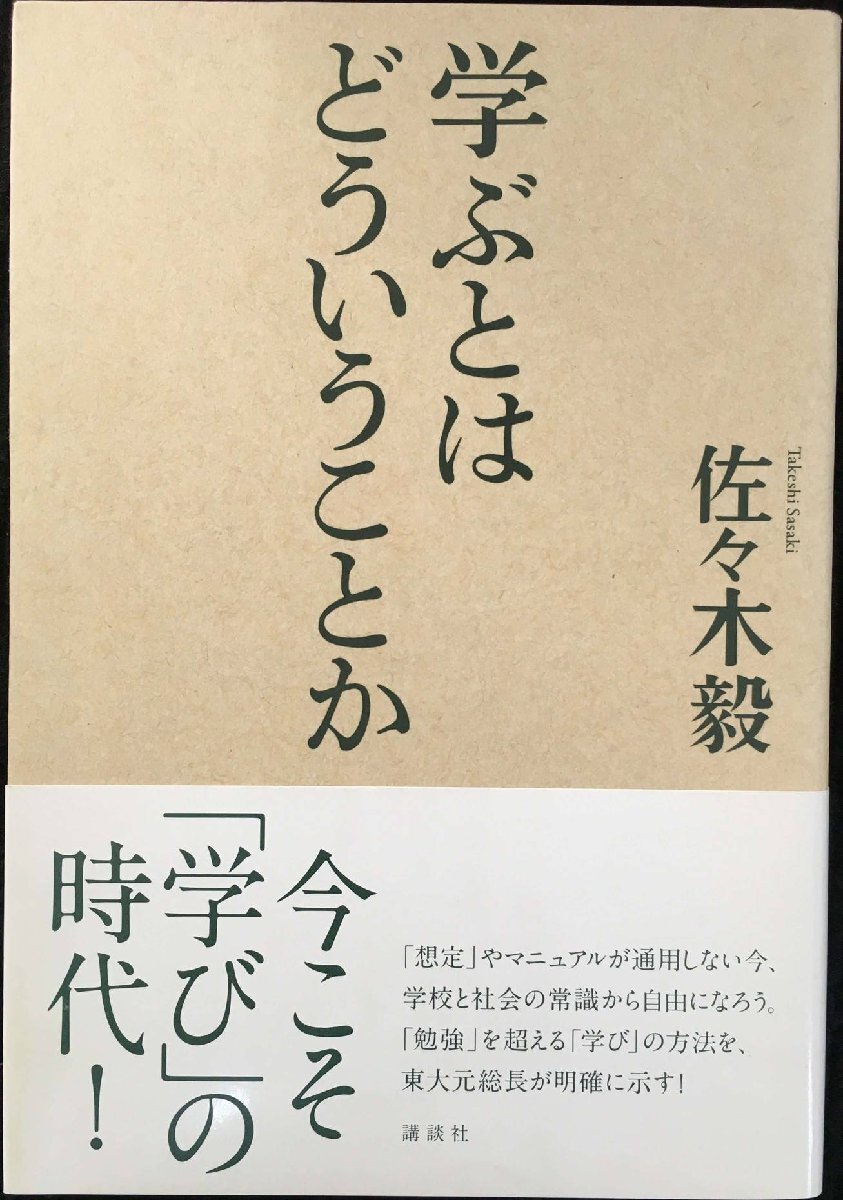 学ぶとは
どういうことか
佐々木毅
Takeshi Sasaki
今こそ
「学び」の
時代!
「想定」やマニュアルが通用しない今、
学校と社会の常識から自由になろう。
「勉強」を超える「学び」の方法を、
東大元総長が明確に示す!
講談社